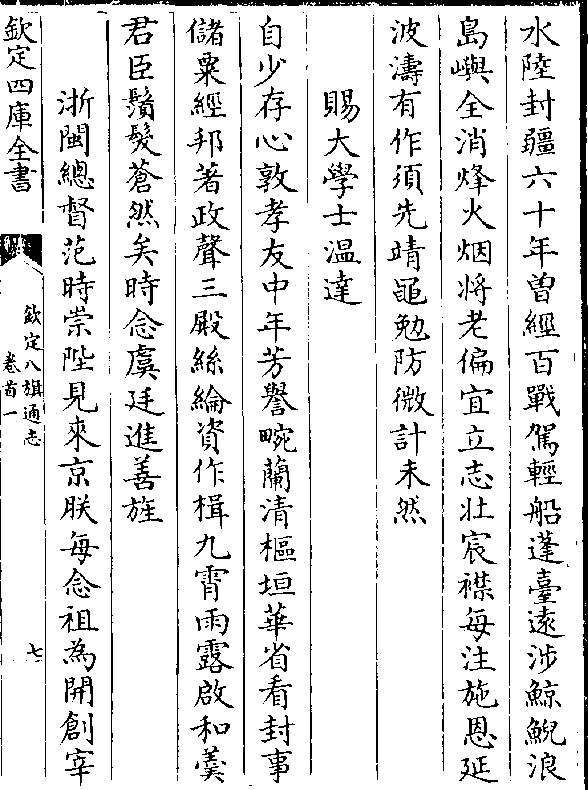 水陸封疆六十年曾經百戰駕輕船蓬臺遠涉鯨鯢浪
島嶼全消烽火烟将老偏宜立志壯宸襟每注施恩延
波濤有作須先靖黽勉防微計未然
賜大學士温達
自少存心敦孝友中年芳譽畹蘭清樞垣華省看封事
儲粟經邦著政聲三殿絲綸資作楫九霄雨露啟和羮
君臣鬚髮蒼然矣時念虞廷進善旌
浙閩總督范時崇陛見來京朕每念祖為開創宰
欽定四庫全書
欽定八旗通志
卷首一
七